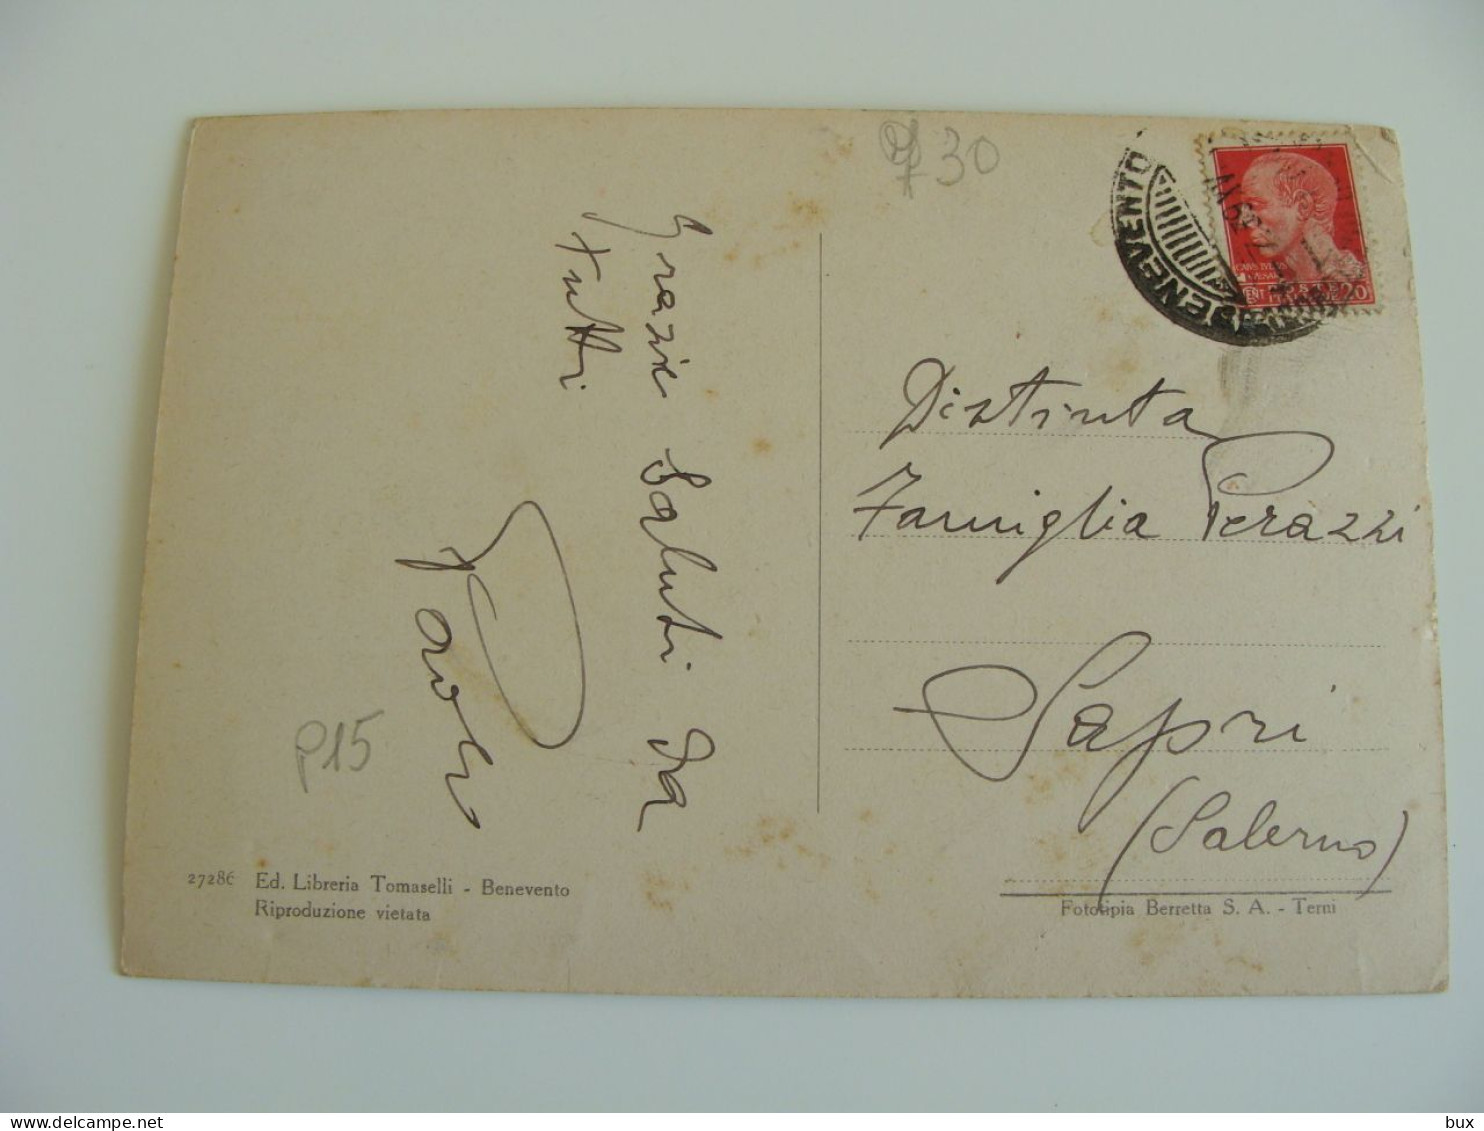 Grazie Saluti da
tutti
Paolo
P15
30
BENEVENTO
20
Distinta
Famiglia Perazzi
Sapri
(Salerno)
27286 Ed. Libreria Tomaselli - Benevento
Riproduzione vietata
Fototipia Berretta S. A. - Terni
delcampe.net
bux